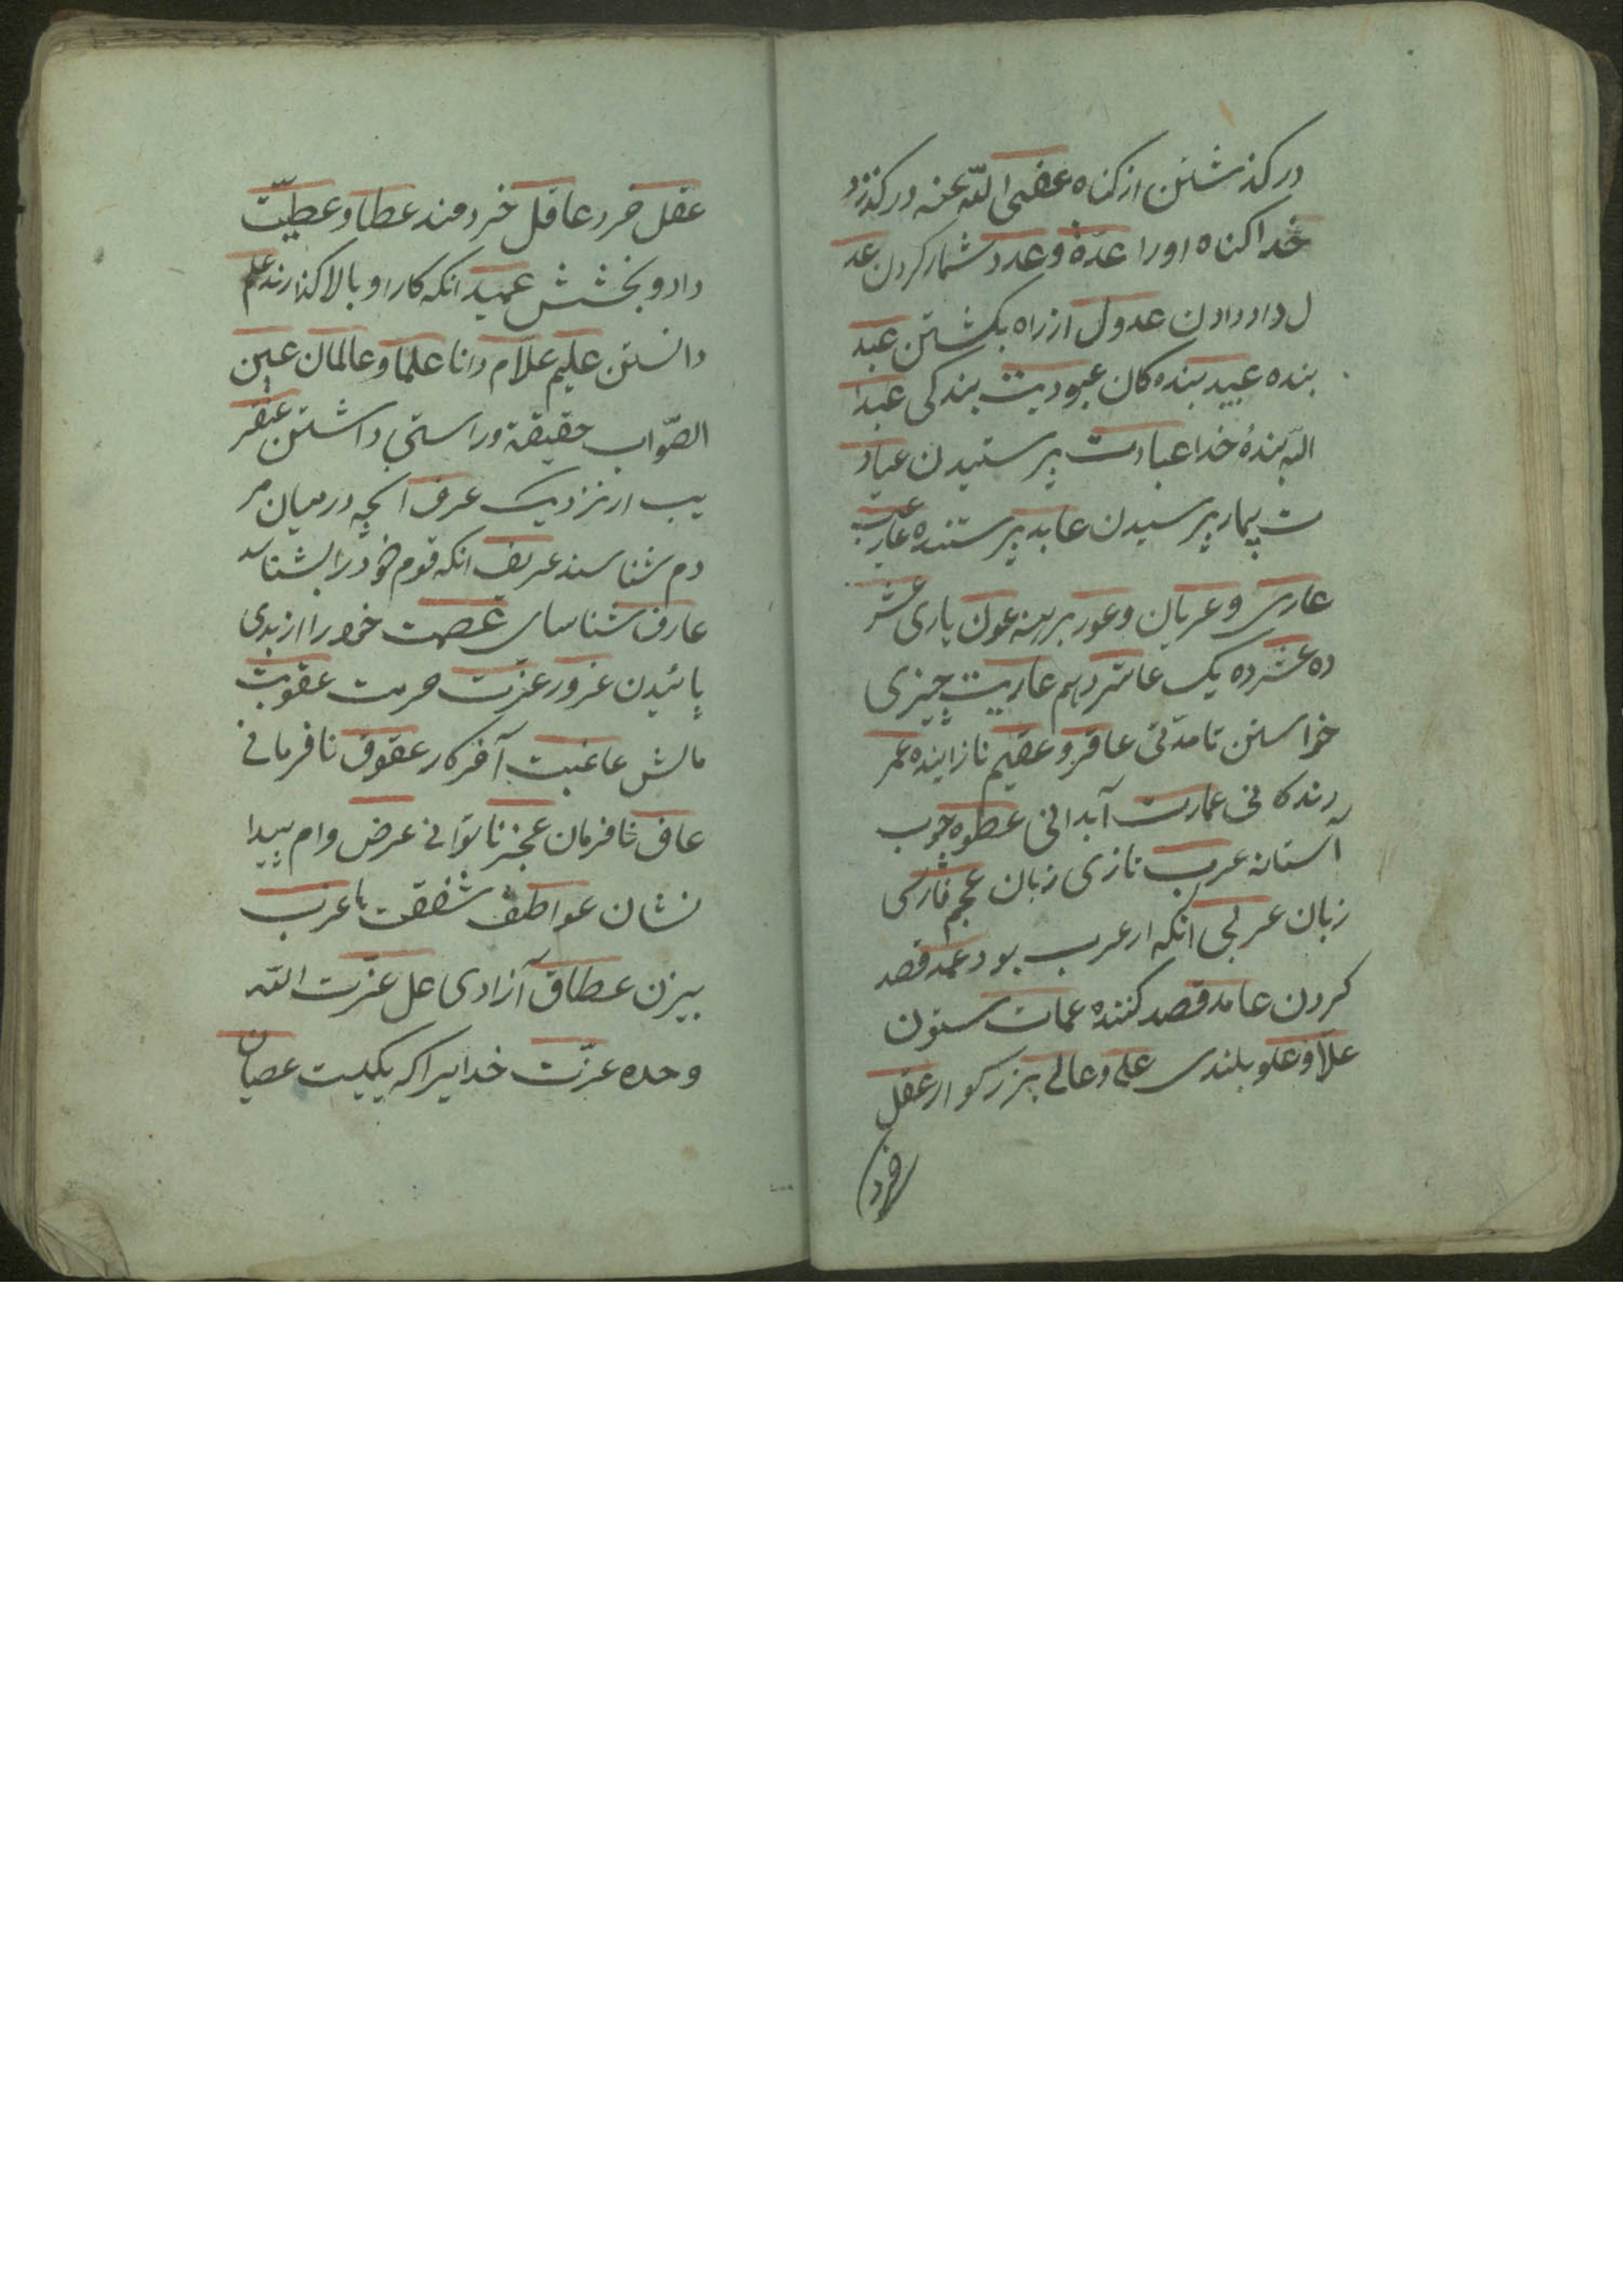 در کذشتن از کناه عفی الله عنه در کذرد
خدا کناه او را عدّة وعدد شمار کردن عد
ل داد دادن عدول از راه بکشتن عبد
بنده عبید بنده کان عبودیت بندکی عبد
الله بندهٔ خدا عبادت پرستیدن عیاد
ت بیمار پرسیدن عابد پرستنده
عاری وعریان وعور برهنه عون یاری عشر
ده عشر ده یک عاشر دهم عاریت چیزی
خواستن تا مدتی عاقر وعقیم نازاینده عمر
زندکانی عمارت آبدانی عطوه چوب
آستانه عرب تازی زبان عجم فارسی
زبان عربی انکه از عرب بود عمد قصد
کردن عامد قصد کننده عماد ستون
علا وعلو بلندی علی وعالی بزرکوار عقل
خرد
عقل خرد عاقل خردمند عطا وعطیّت
داد وبخشش عمید انکه کار او بالا کذارند علم
دانستن علیم علّام دانا علما وعالمان عین
الصّواب حقیقة وراستی داشتن عنقر
یب از نزدیک عرف انچه در میان مر
دم شناسند عریف انکه قوم خود را بشناسد
عارف شناسای عصمت خود را از بدی
پائیدن غرور عزت حرمت عقوبت
مالش عاغبت آخر کار عقوق نافرمانی
عاق نافرمان عجز ناتوانی عرض وام پیدا
نشان عواطف شفقت ها عزب
بیزن عطاق آزادی عل عزّت الله
وحده عزّت خدایرا که یکیست عصیان